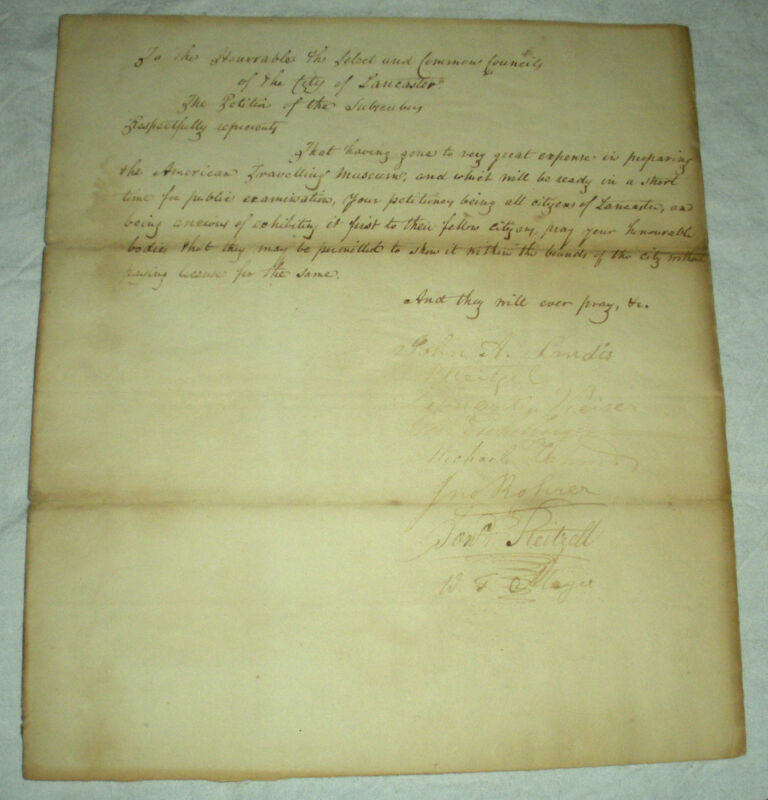 To the Honourable the Select and Common Councils
of the City of Lancaster
The Petition of the Subscribers
Respectfully represents
That having gone to very great expense in preparing
the American Travelling Museum, and which will be ready in a short
time for public examination, Your petitioners being all citizens of Lancaster, and
being anxious of exhibiting it first to their fellow citizens, pray your honourable
bodies that they may be permitted to show it within the bounds of the city without
paying license for the same.
And they will ever pray, &c.
John A. Landis
Reitzel
Weiser
Michael
Jno Rohrer
Reitzell
Mayer